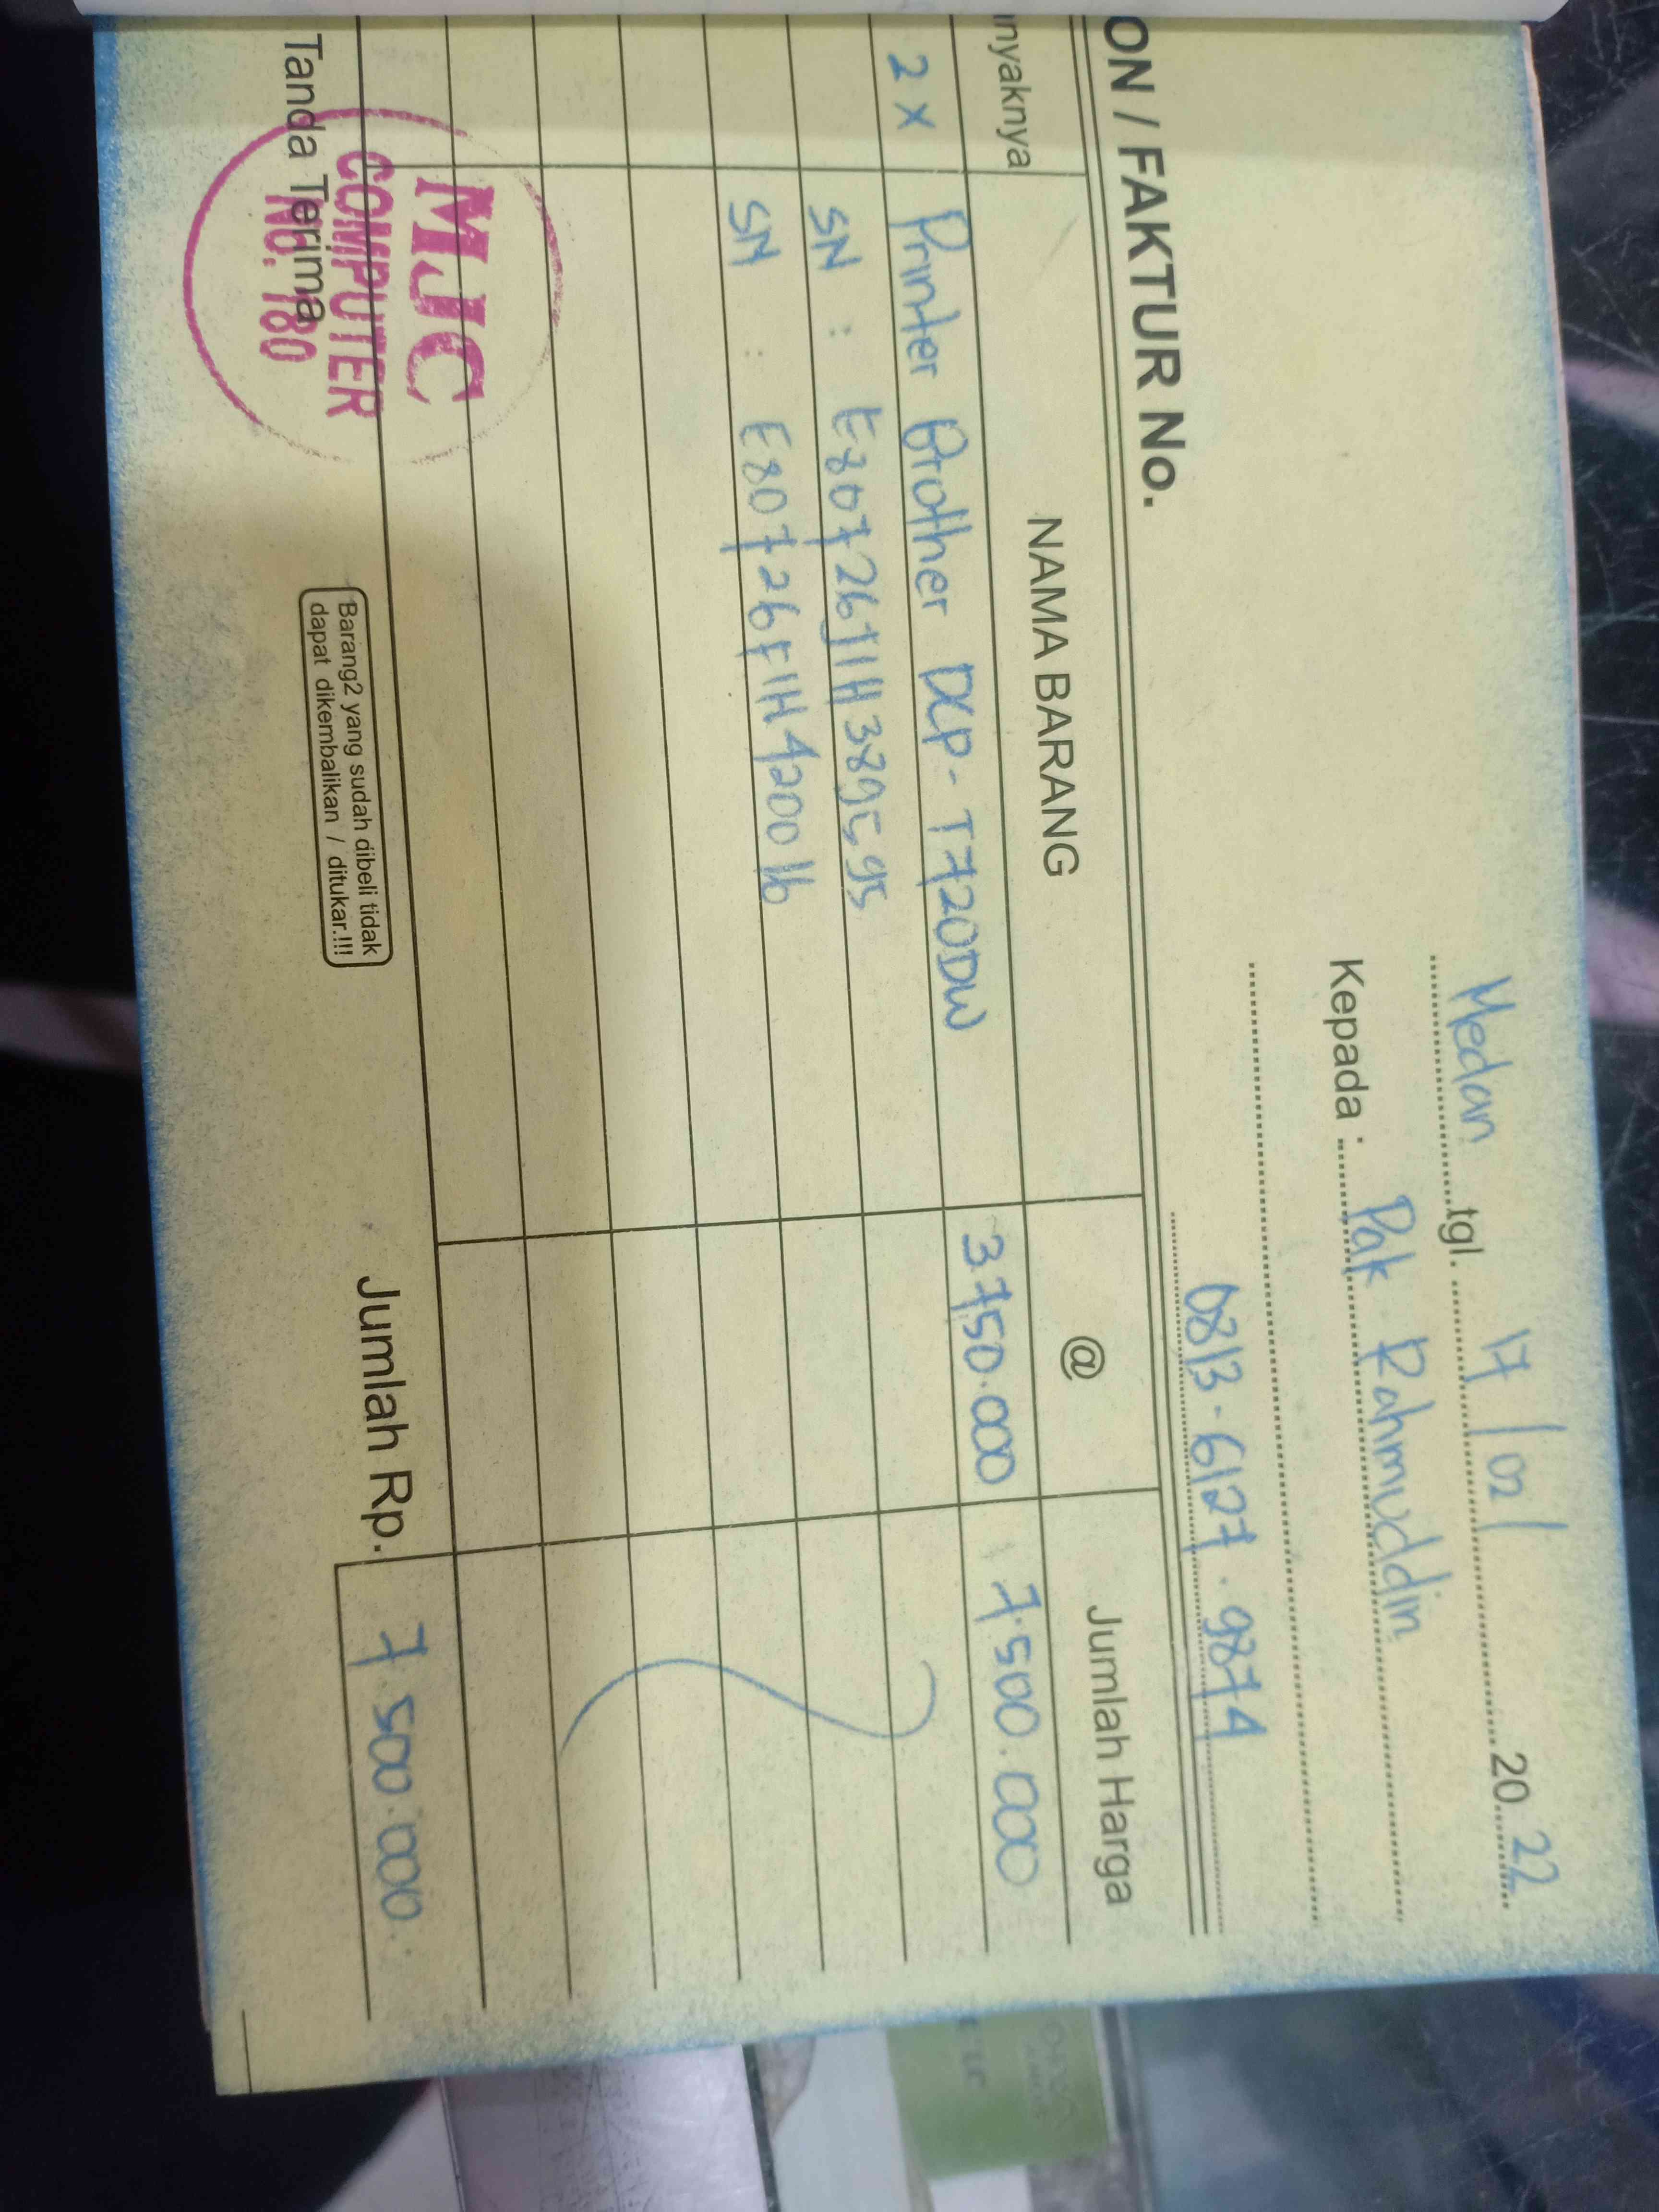 Medan tgl. 17 / 02 / 20 22
Kepada : Pak Rahmuddin
0813-6127-9874
ON / FAKTUR No.
nyaknya NAMA BARANG @ Jumlah Harga
2 x Printer Brother DCP-T720DW 3.750.000 7.500.000
SN :
SN :
Tanda Terima
MJC
COMPUTER
No. 180
Barang2 yang sudah dibeli tidak
dapat dikembalikan / ditukar.!!!
Jumlah Rp. 7.500.000